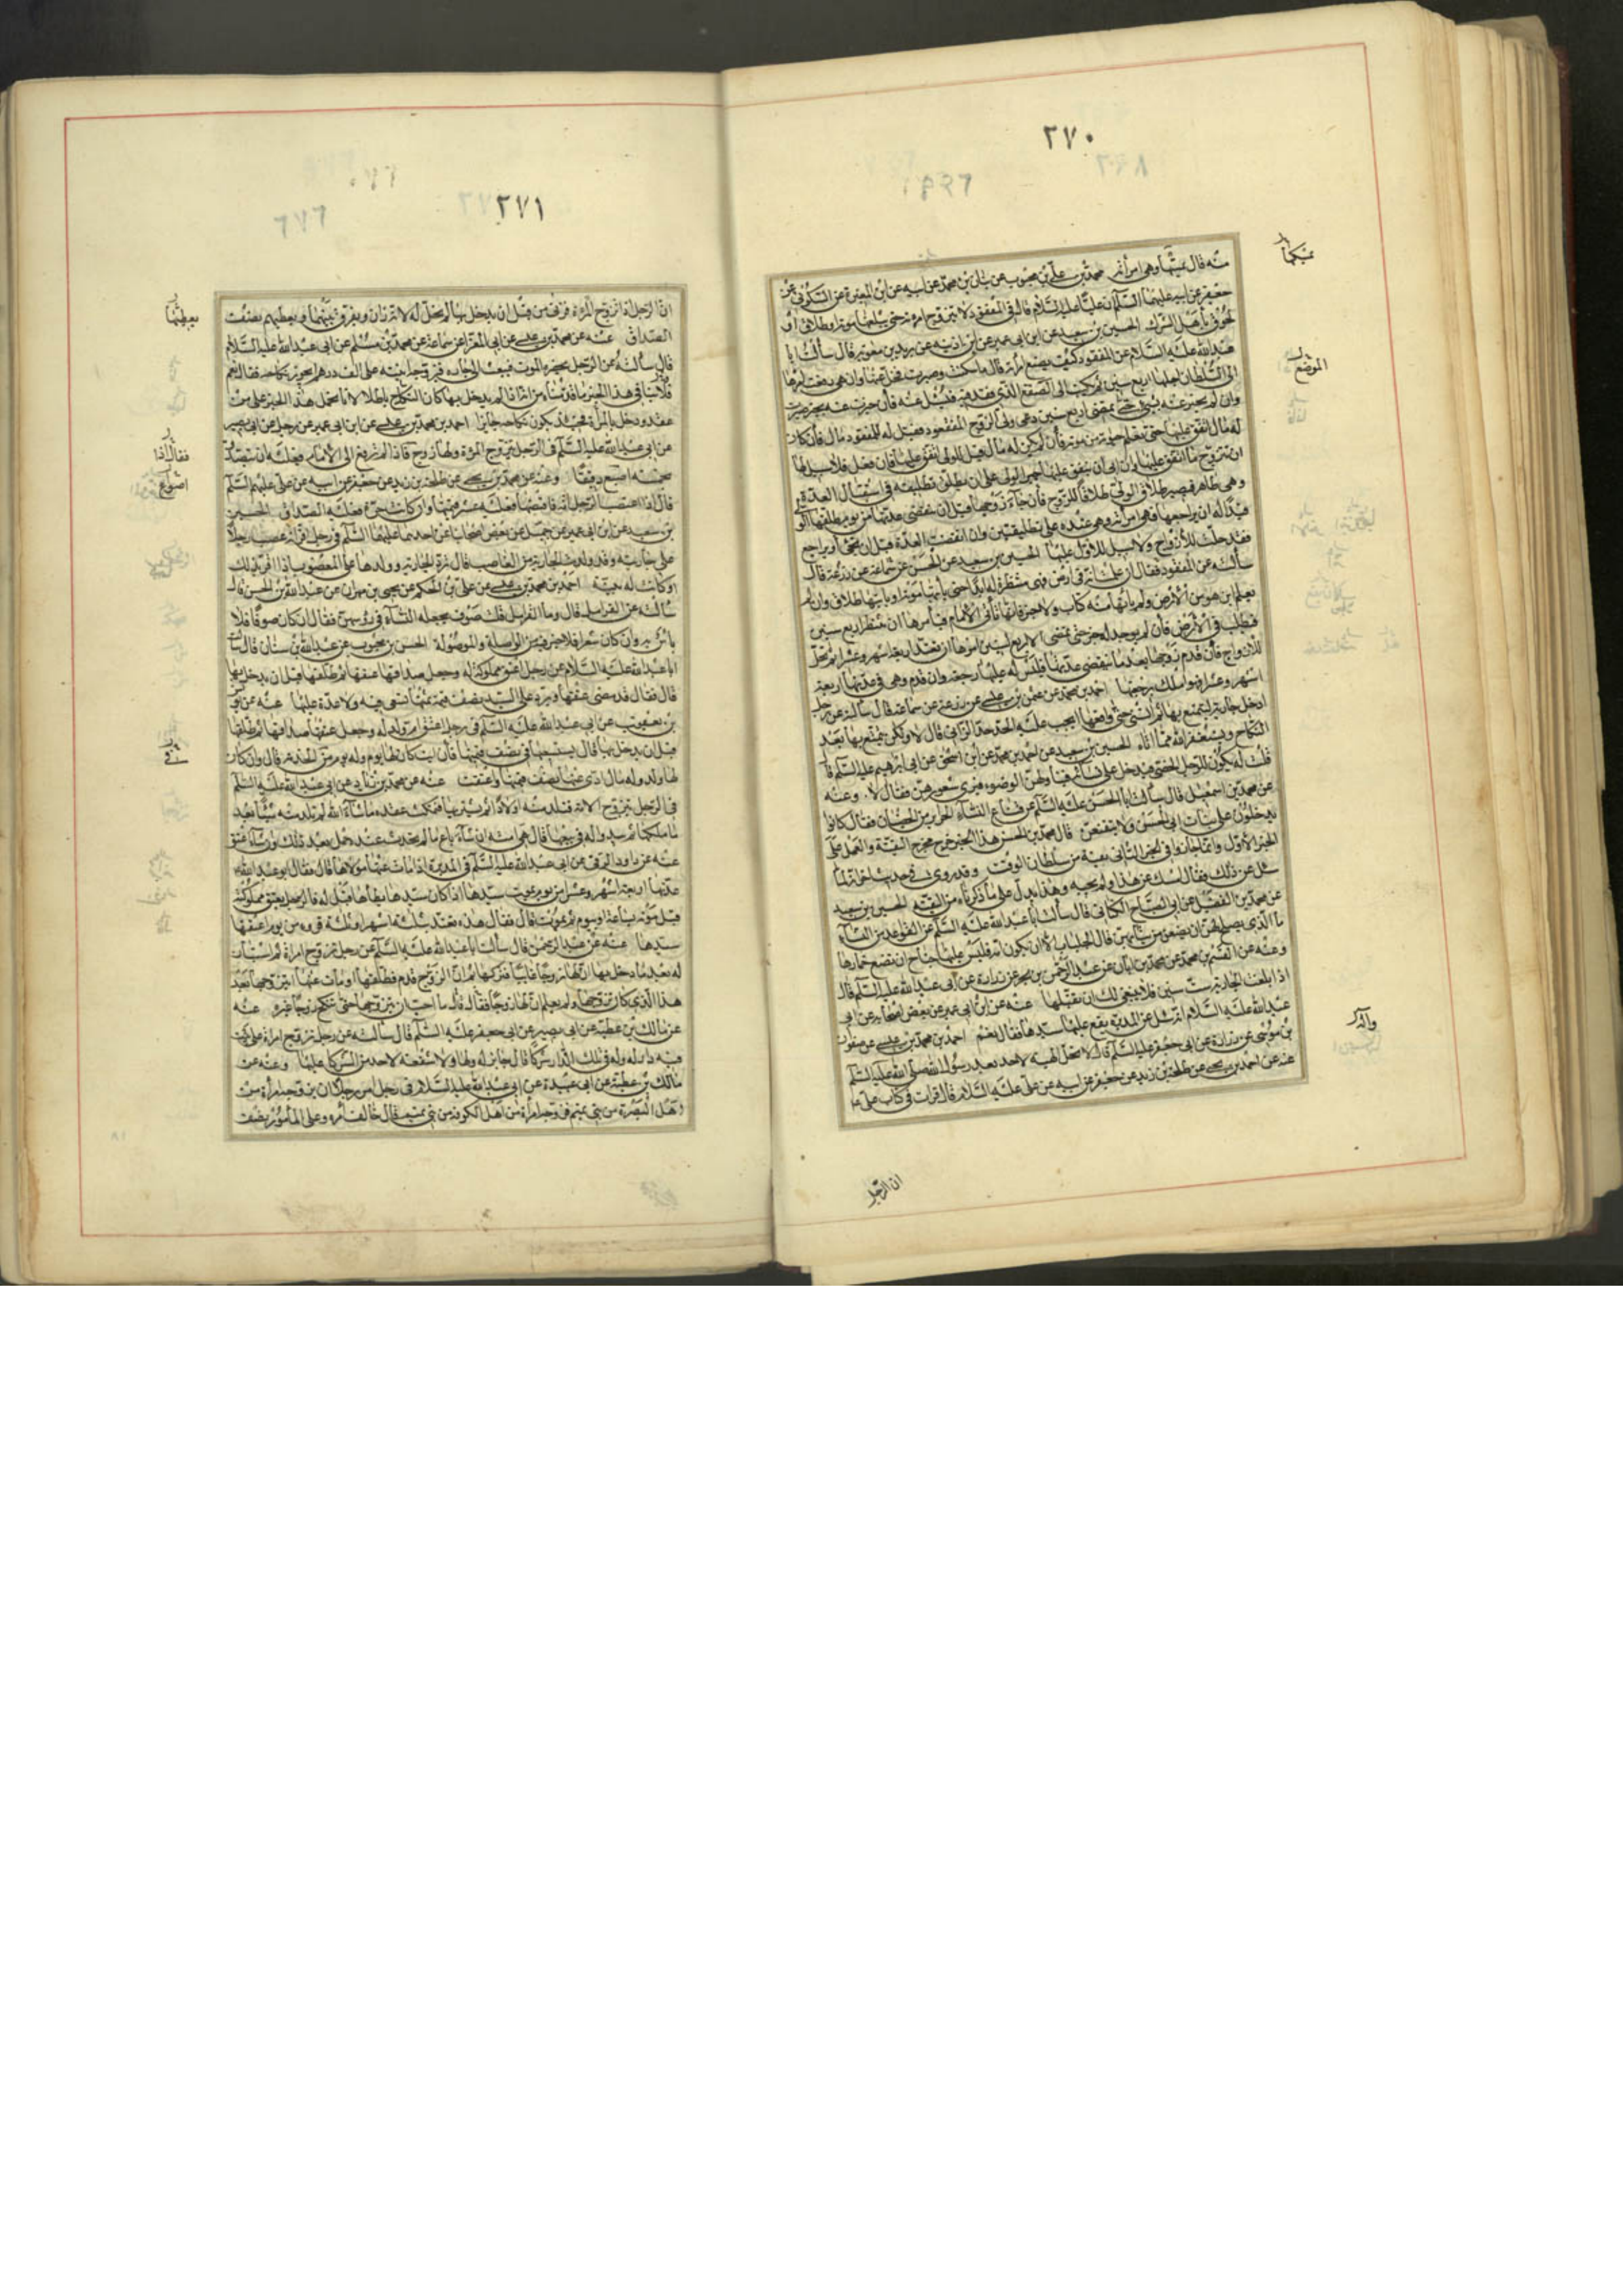 ٢٧٠
منه قال يمسكها وهي امرأته محمد بن علي بن محبوب عن بنان بن محمد عن ابيه عن ابن المغيرة عن السكوني عن
جعفر عن ابيه عليهما السلام ان عليا عليه السلام قال في المفقود لا تتزوج امرأته حتى يبلغها موته او طلاق او
لحوق باهل الشرك الحسين بن سعيد عن ابن ابي عمير عن ابن اذينه عن بريد بن معويه قال سألت ابا
عبد الله عليه السلام عن المفقود كيف يصنع امرأته قال ما سكتت وصبرت يخلى عنها وان هي رفعت امرها
الى السلطان اجلها اربع سنين ثم يكتب الى الصقع الذي فقد فيه فيسئل عنه فان خبرت عنه بخبر صبرت
وان لم يخبر عنه بشيء حتى تمضي اربع سنين دعي ولي الزوج المفقود فقيل له للمفقود مال فان كان
له مال انفق عليها حتى تعلم حياته من موته فان لم يكن له مال قيل للولي انفق عليها فان فعل فلا سبيل لها
ان تتزوج ما انفق عليها وان ابى ان ينفق عليها اجبر الولي على ان يطلق تطليقة في استقبال العدة
وهي طاهر فيصير طلاق الولي طلاقا للزوج فان جاء زوجها قبل ان تنقضي عدتها من يوم طلقها الولي
فبدا له ان يراجعها فهي امرأته وهي عنده على تطليقتين وان انقضت العدة قبل ان يجيء او يراجع
فقد حلت للازواج ولا سبيل للاول عليها الحسين بن سعيد عن الحسن عن سماعة عن زرعة قال
سألته عن المفقود فقال ان علمت انه في ارض فهي منتظرة له ابدا حتى يأتيها موته او يأتيها طلاق وان لم
يعلم اين هو من الارض ولم يأتها منه كتاب ولا خبر فانها تأتي الامام فيأمرها ان تنتظر اربع سنين
فيطلب في الارض فان لم يوجد له خبر حتى تمضي الاربع سنين امرها ان تعتد اربعة اشهر وعشرا ثم تحل
للازواج فان قدم زوجها بعد ما تنقضي عدتها فليس له عليها رجعة وان قدم وهي في عدتها اربعة
اشهر وعشرا فهو املك برجعتها احمد بن محمد عن عثمن بن عيسى عن زرعة عن سماعة قال سألته عن رجل
ادخل جارية يتمتع بها ثم انسي حتى واقعها ايجب عليه الحد حد الزاني قال لا ولكن يتمتع بها بعد
النكاح ويستغفر الله مما اتاه الحسين بن سعيد عن احمد بن محمد عن ابن اسحق عن ابي ابرهيم عليه السلم قا
قلت له يكون للرجل الخصي يدخل على نسائه فيناولهن الوضوء فيرى شعورهن فقال لا وعنه
عن محمد بن اسمعيل قال سألت ابا الحسن عليه السلم عن قناع النساء الحرائر من الخصيان فقال كانوا
يدخلون على بنات ابي الحسن ولا يتقنعن قال محمد بن الحسن هذا الخبر خرج مخرج التقية والعمل على
الخبر الاول
سئل عن ذلك فقال امسك عن هذا ولم يجبه وهذا يدل على ما ذكرناه من التقية الحسين بن سعيد
عن محمد بن الفضيل عن ابي الصباح الكناني قال سألت ابا عبد الله عليه السلم عن القواعد من النساء
ما الذي يصلح لهن ان يضعن من ثيابهن قال الجلباب الا ان تكون امة فليس عليها جناح ان تضع خمارها
وعنه عن القسم بن محمد عن محمد بن ابان عن عبد الرحمن بن بحر عن زرارة عن ابي عبد الله عليه السلم قال
اذا بلغت الجارية ست سنين فلا ينبغي لك ان تقبلها عنه عن ابن ابي عمير عن بعض اصحابه عن ابي
عبد الله عليه السلام انه سئل عن المدبرة يقع عليها سيدها فقال نعم احمد بن محمد بن عيسى عن صفوان
بن موسى عن زرارة عن ابي جعفر عليه السلم قال لا تحل الهبة لاحد بعد رسول الله صلى الله عليه السلم
عنه عن احمد بن يحيى عن طلحة بن زيد عن جعفر عن ابيه عن علي عليه السلام قال قرأت في كتاب علي ع
الموضع
ان الرجل
٢٧١
ان الرجل اذا تزوج المرأة فزنى من قبل ان يدخل بها لم تحل له لانه زان ويفرق بينهما ويعطيهم نصف
الصداق عنه عن محمد بن عيسى عن ابي المغرا عن سماعة عن محمد بن مسلم عن ابي عبد الله عليه السلام
قال سألته عن الرجل يحضره الموت فيبعث الى جاره فيزوجه ابنته على الف درهم ايجوز نكاحه فقال نعم
عقد ودخل بالمرأة فحينئذ يكون نكاحه جايزا احمد بن محمد بن عيسى عن ابن ابي عمير عن رجل عن ابي بصير
عن ابي عبد الله عليه السلم في الرجل يتزوج المرأة ولها زوج قال اذا لم يرفع الى الامام فعليه ان يتصدق
بخمسة اصيع دقيقا وعنه عن محمد بن يحيى عن طلحة بن زيد عن جعفر عن ابيه عن علي عليهم السلم
قال اذا اغتصب الرجل امة فاقتضها فعليه عشر قيمتها وان كانت حرة فعليه الصداق الحسين
بن سعيد عن ابن ابي عمير عن جميل عن بعض اصحابنا عن احدهما عليهما السلم في رجل اقر انه غصب رجلا
على جاريته وقد ولدت الجارية من الغاصب قال ترد الجارية وولدها على المغصوب اذا اقر بذلك
او كانت له بينة احمد بن محمد بن عيسى عن علي بن الحكم عن يحيى بن مهران عن عبد الله بن الحسن قال
سألته عن القرامل قال وما القرامل قلت صوف تجعله النساء في رؤسهن فقال ان كان صوفا فلا
بأس به وان كان شعرا فلا خير فيه من الواصلة والموصولة الحسن بن محبوب عن عبد الله بن سنان قال سألت
ابا عبد الله عليه السلام عن رجل اعتق مملوكة له وجعل صداقها عتقها ثم طلقها قبل ان يدخل بها
قال فقال قد مضى عتقها ويرد على السيد نصف قيمة ثمنها تسعى فيه ولا عدة عليها عنه عن يونس
بن يعقوب عن ابي عبد الله عليه السلم في رجل اعتق ام ولد له وجعل عتقها صداقها ثم طلقها
قبل ان يدخل بها قال يستسعيها في نصف قيمتها فان ابت كان لها يوم وله يوم من الخدمة قال وان كان
لها ولد وله مال ادى عنها نصف قيمتها واعتقت عنه عن محمد بن زياد عن ابي عبد الله عليه السلم
في الرجل يتزوج الامة فتلد منه اولادا ثم يشتريها فتمكث عنده ما شاء الله لم تلد منه شيئا بعد
ما ملكها ثم يبدو له في بيعها قال هي امته ان شاء باع ما لم يحدث عنده حمل بعد ذلك وان شاء اعتق
عنه عن داود الرقي عن ابي عبد الله عليه السلم في المدبرة اذا مات عنها مولاها قال فقال ابو عبد الله ع
عدتها اربعة اشهر وعشرا من يوم يموت سيدها اذا كان سيدها يطأها قيل له فالرجل يعتق مملوكته
قبل موته بساعة او بيوم ثم يموت قال فقال هذه تعتد بثلثة اشهر او ثلثة قروء من يوم اعتقها
سيدها عنه عن عبد الرحمن قال سألت ابا عبد الله عليه السلم عن رجل تزوج امرأة ثم استبان
له بعد ما دخل بها ان لها زوجا غايبا فتركها ثم ان الزوج قدم فطلقها او مات عنها ايتزوجها بعد
هذا الذي كان تزوجها ولم يعلم ان لها زوجا فقال ما احب ان يتزوجها حتى تنكح زوجا غيره عنه
عن مالك بن عطية عن ابي بصير عن ابي جعفر عليه السلم قال سألته عن رجل تزوج امرأة على بيت
في دار له وله في تلك الدار شركاء قال جايز له ولها ولا شفعة لاحد من الشركاء عليها وعنه عن
مالك بن عطية عن ابي عبيدة عن ابي عبد الله عليه السلام في رجل امر رجلا ان يزوجه امرأة من
اهل البصرة من بني تميم فزوجه امرأة من اهل الكوفة من بني تميم قال خالف امره وعلى المأمور نصف
يعطيها
فقال اذا
اصوع